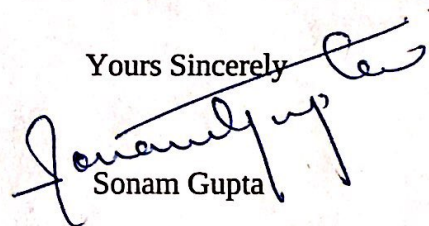 Yours Sincerely
Sonam Gupta
Sonam Gupta